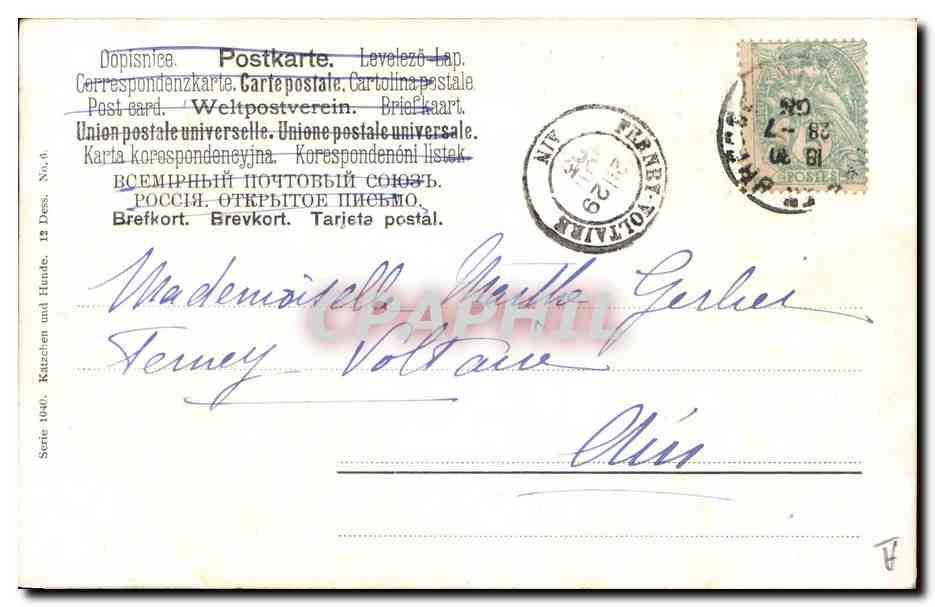 Dopisnice. Postkarte. Levelező-Lap.
Correspondenzkarte. Carte postale. Cartolina postale.
Post card. Weltpostverein. Briefkaart.
Union postale universelle. Unione postale universale.
Karta korespondencyjna. Korespondenčni listek.
ВСЕМІРНЫЙ ПОЧТОВЫЙ СОЮЗЪ.
РОССІЯ. ОТКРЫТОЕ ПИСЬМО.
Brefkort. Brevkort. Tarjeta postal.
FERNEY-VOLTAIRE
AIN
29
18 30
29 -7
POSTES
Mademoiselle Marthe Gerlier
Ferney-Voltaire
Ain
CPAPHIL
Serie 1040. Katzchen und Hunde. 12 Dess. No. 6.
A